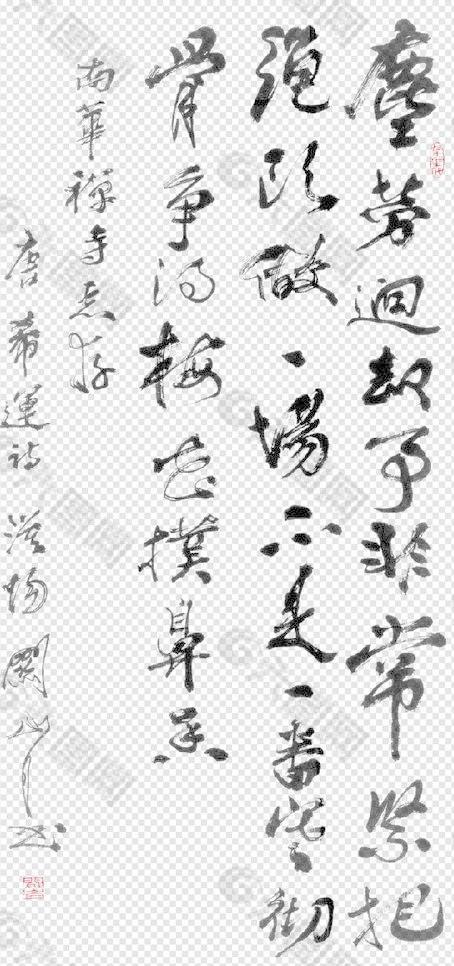 塵勞迴却事非常緊把
繩頭做一場不是一番寒徹
骨爭得梅花撲鼻香
南華禪寺惠存
唐希運詩 漠陽關山月書